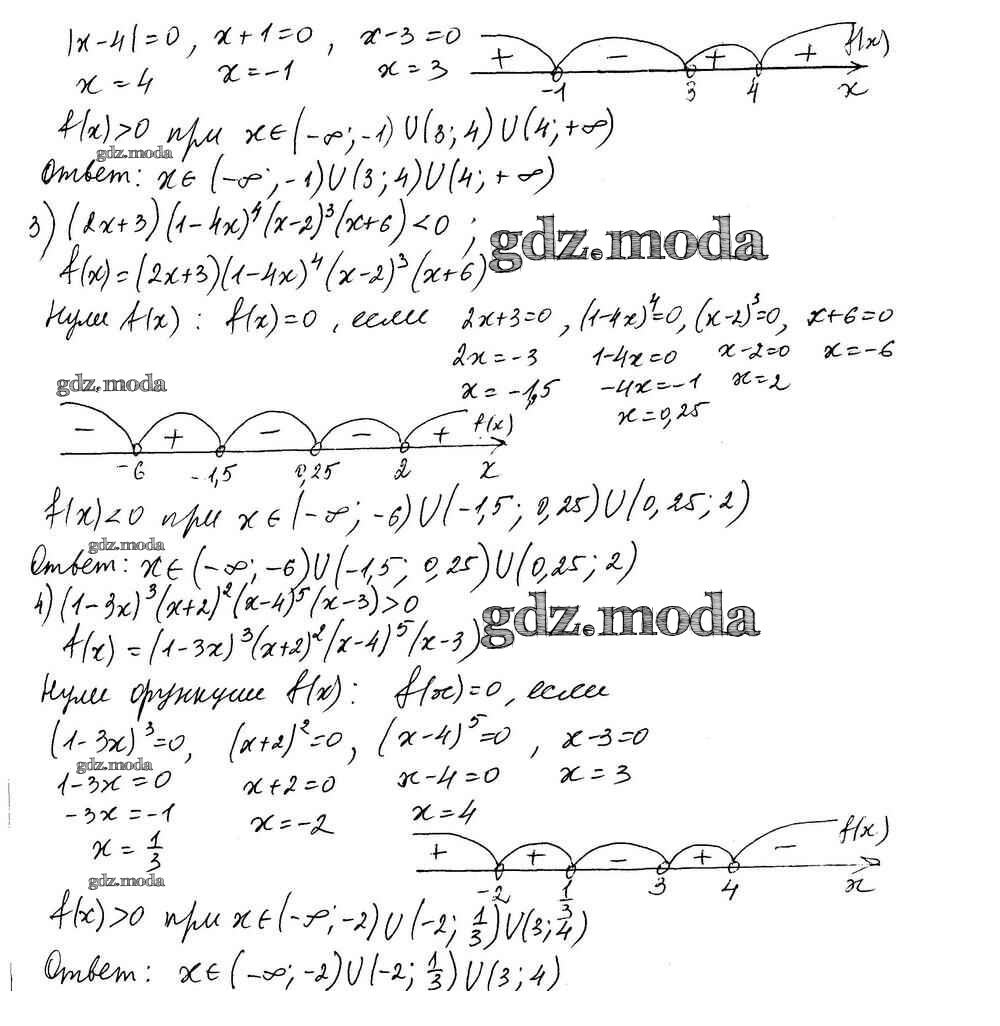 |x-4|=0, x+1=0, x-3=0
x=4 x=-1 x=3
+ - + + f(x)
-1 3 4 x
f(x)>0 при x∈(-∞;-1)∪(3;4)∪(4;+∞)
gdz.moda
Ответ: x∈(-∞;-1)∪(3;4)∪(4;+∞)
3) (2x+3)(1-4x)⁴(x-2)³(x+6)<0;
gdz.moda
f(x)=(2x+3)(1-4x)⁴(x-2)³(x+6)
Нули f(x): f(x)=0, если 2x+3=0, (1-4x)⁴=0, (x-2)³=0, x+6=0
2x=-3 1-4x=0 x-2=0 x=-6
gdz.moda
x=-1,5 -4x=-1 x=2
x=0,25
- + - - + f(x)
-6 -1,5 0,25 2 x
f(x)<0 при x∈(-∞;-6)∪(-1,5;0,25)∪(0,25;2)
gdz.moda
Ответ: x∈(-∞;-6)∪(-1,5;0,25)∪(0,25;2)
4) (1-3x)³(x+2)²(x-4)⁵(x-3)>0
gdz.moda
f(x)=(1-3x)³(x+2)²(x-4)⁵(x-3)
Нули функции f(x): f(x)=0, если
(1-3x)³=0, (x+2)²=0, (x-4)⁵=0, x-3=0
gdz.moda
1-3x=0 x+2=0 x-4=0 x=3
-3x=-1 x=-2 x=4
x=1/3
+ + - + - f(x)
gdz.moda
-2 1/3 3 4 x
f(x)>0 при x∈(-∞;-2)∪(-2;1/3)∪(3;4)
Ответ: x∈(-∞;-2)∪(-2;1/3)∪(3;4)